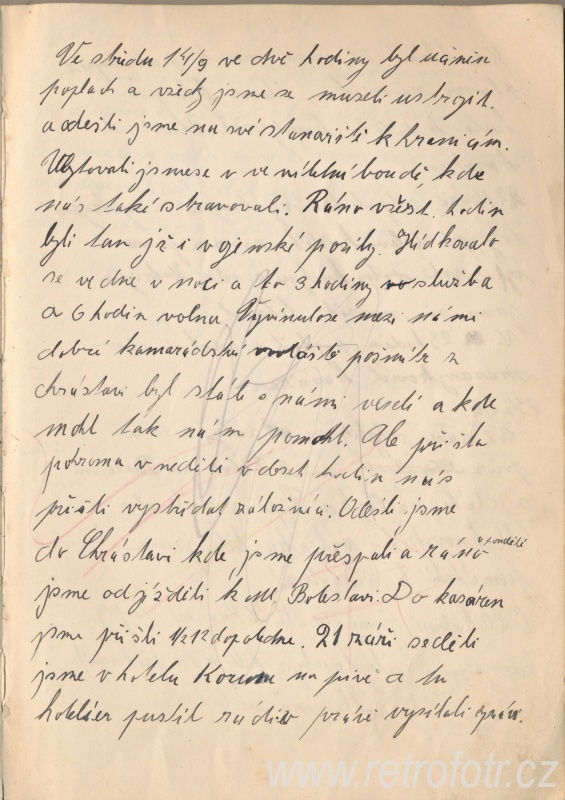 Ve středu 14/9 ve dvě hodiny byl učiněn
poplach a všichy jsme se museli ustrojit.
a odešli jsme na své stanoviště k hranicím.
Ubytovali jsmese v ve boudě, kde
nás také stravovali. Ráno v šest hodin
byli tam již i vojenské posily. Hlídkovalo
se ve dne v noci a to 3 hodiny služba
a 6 hodin volna. Vyvinulose mezi námi
dobré kamarádství z
chrástavi byl stále s námi veselí a kde
mohl tak nám pomohl. Ale přišla
v neděli v deset hodin nás
přišli vystřídat záložníci. Odešli jsme
do Chrástavi kde jsme přespali a ráno v pondělí
jsme odjížděli k Ml. Boleslavi. Do kasáren
jsme přišli 1/2 12 dopoledne. 21 září seděli
jsme v hotelu Koruna na pivě a tu
hoteliér pustil rádio právě vysílali zprávi.
www.retrofotr.cz